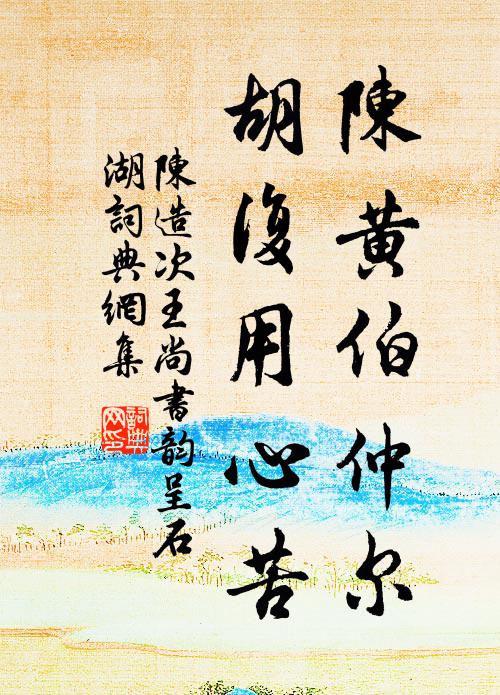 陳黄伯仲尔
胡復用心苦
陳造次王尚書韵呈石
湖詞典網集
詞典網印